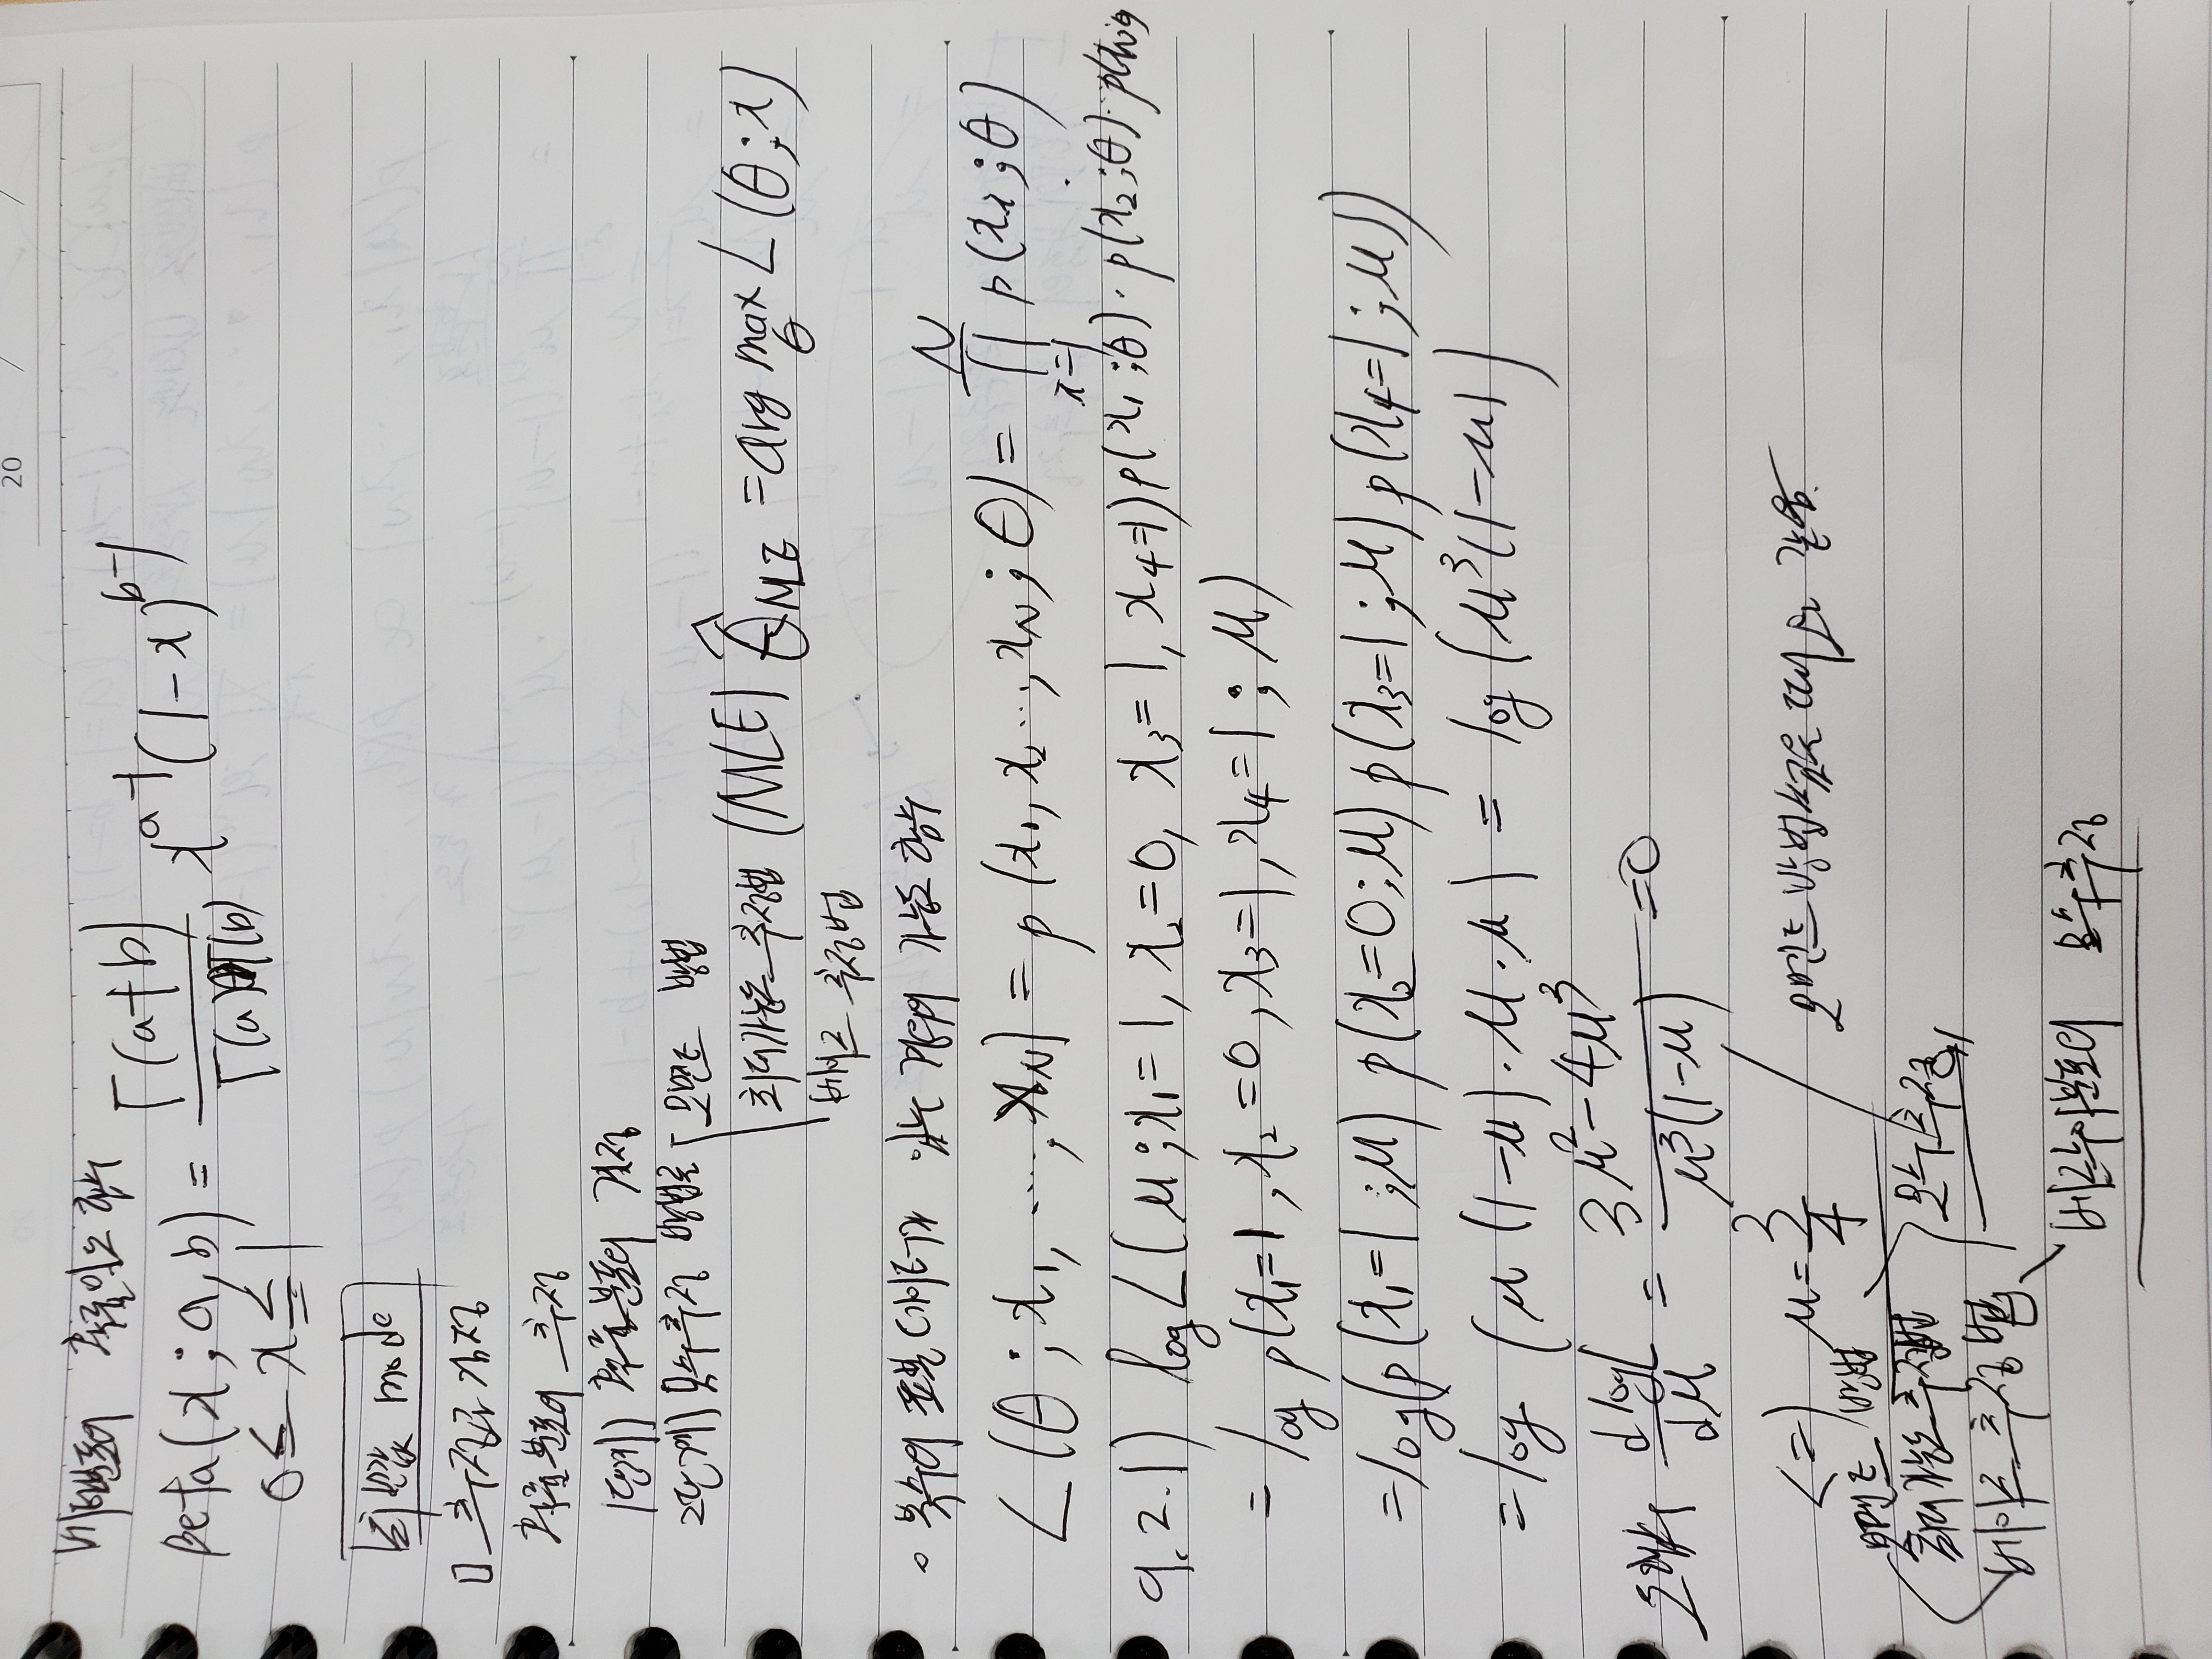 20 / /
베타분포의 확률밀도 함수
Beta(x;a,b) = Γ(a+b) / Γ(a)Γ(b) x^{a-1}(1-x)^{b-1}
0 ≤ x ≤ 1
최빈값 mode
□ 추정과 검정
확률분포의 추정
1단계) 확률분포의 결정
2단계) 모수추정 방법론 모멘트 방법
최대가능도 추정법 (MLE) θ̂_MLE = arg max_θ L(θ;x)
베이즈 추정법
○ 복수의 표본 데이터가 있는 경우의 가능도 함수
L(θ;x₁, ..., x_N) = p(x₁, x₂ ..., x_N;θ) = ∏_{i=1}^{N} p(x_i;θ)
p(x₁;θ)·p(x₂;θ)...
9.2.1) log L(μ;x₁=1, x₂=0, x₃=1, x₄=1)
= log p(x₁=1, x₂=0, x₃=1, x₄=1;μ)
= log(p(x₁=1;μ) p(x₂=0;μ) p(x₃=1;μ) p(x₄=1;μ))
= log (μ(1-μ)·μ·μ) = log(μ³(1-μ))
도함수 d log L / dμ = 3μ²-4μ³ / μ³(1-μ) = 0
<=> μ = 3/4 모멘트 방법 때와 같음.
모멘트 방법
최대가능도 추정법 모수추정
베이즈 추정법
베르누이분포의 모수추정